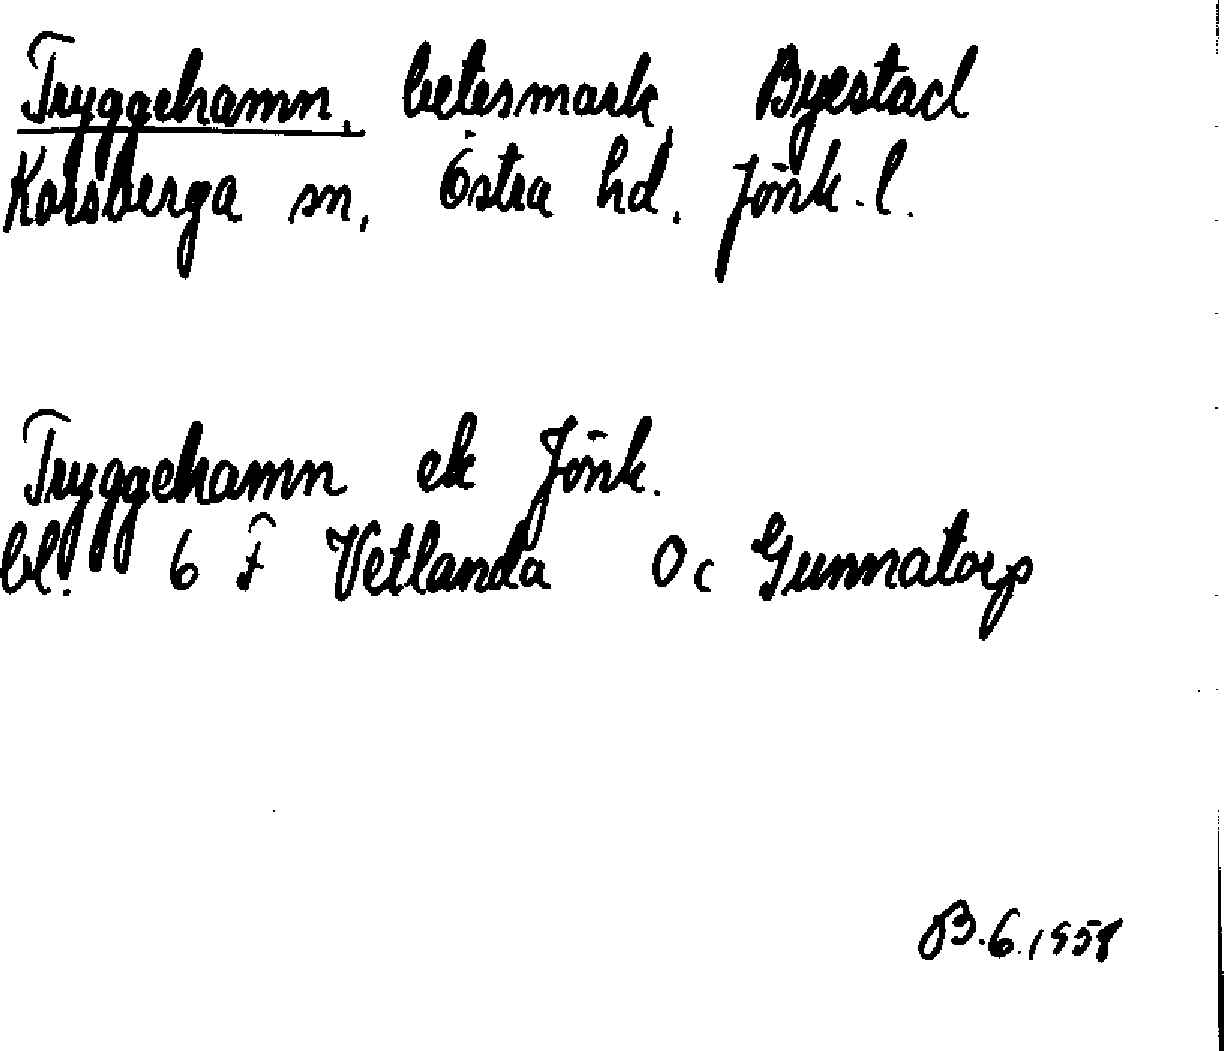 Tryggehamn, betesmark, Byestad
Korsberga sn, Östra hd, Jönk. l.
Tryggehamn ek Jönk.
bl. 6 F Vetlanda Oc Gunnatorp
B. 6. 1958